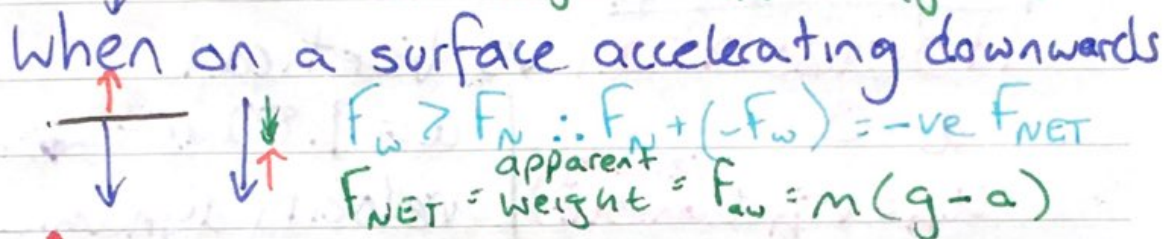 When on a surface accelerating downwards
F_w > F_N ∴ F_N + (-F_w) = -ve F_NET
F_NET = apparent weight = F_aw = m(g-a)